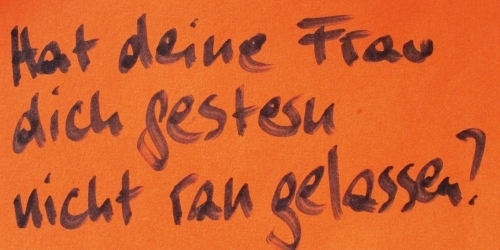 Hat deine Frau
dich gestern
nicht ran gelassen?